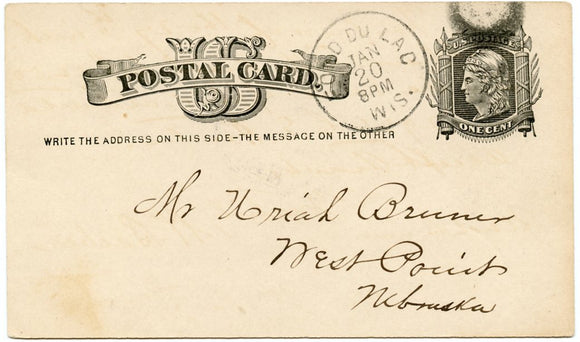 US
POSTAL CARD.
U.S. POSTAGE
ONE CENT
D DU LAC
JAN
20
8PM
WIS.
WRITE THE ADDRESS ON THIS SIDE–THE MESSAGE ON THE OTHER
Mr Uriah Bruner
West Point
Nebraska